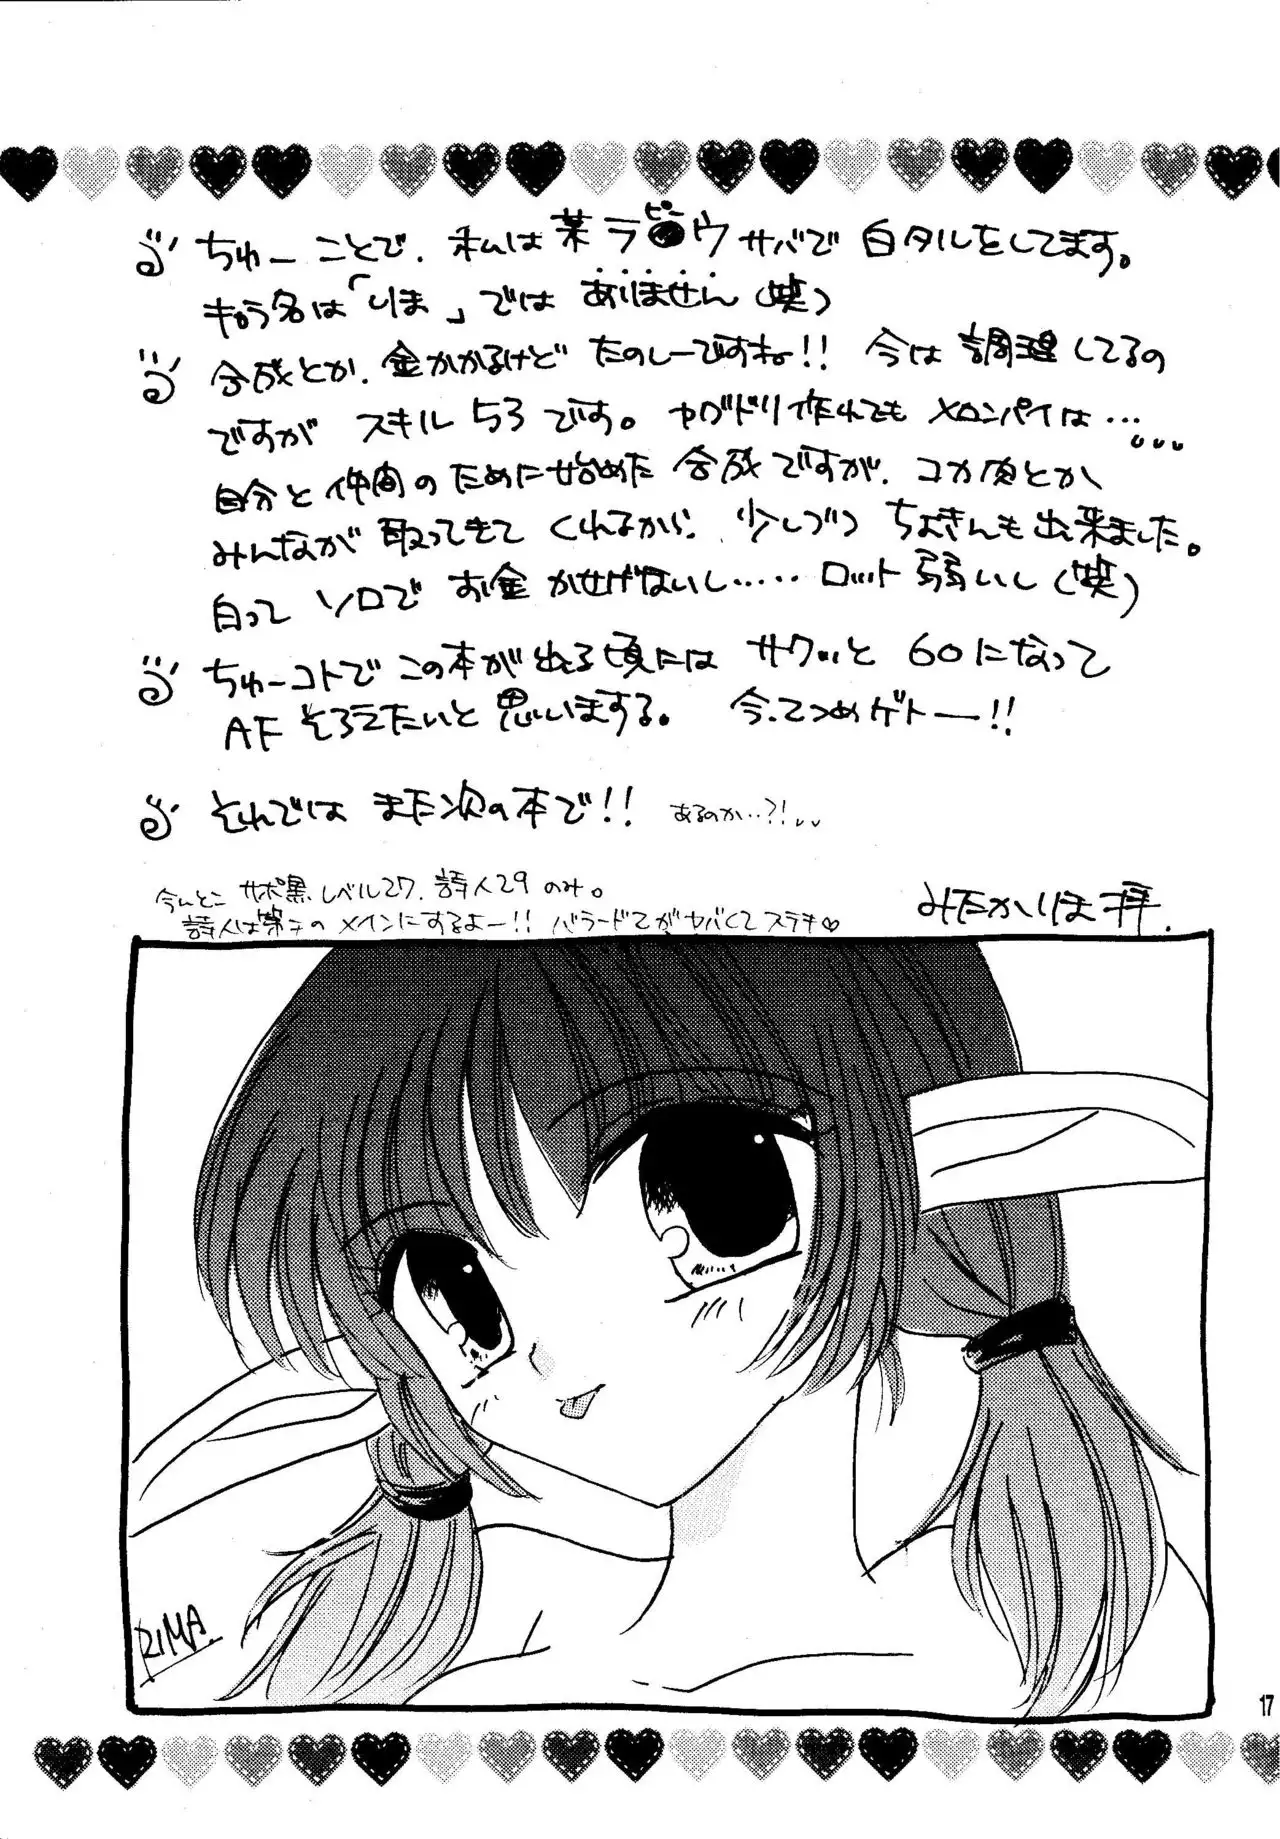 ちゅーことで、私は某ラ●ウサバで白タルをしてます。
キャラ名は「りま」ではありません(笑)
合成とか、金かかるけどたのしーですね!! 今は調理してるの
ですが スキル53です。ヤグドリ作れてもメロンパイは…
自分と仲間のために始めた合成ですが、コカ肉とか
みんなが取ってきてくれるから、少しづつちょきんも出来ました。
白ってソロでお金かせげないし……ロット弱いし(笑)
ちゅーコトでこの本が出る頃にはサクッと60になって
AFそろえたいと思いまする。 今、てつめゲトー!!
それではまた次の本で!! あるのか…?!
今んとこサポ黒レベル27、詩人29のみ。
詩人は第二のメインにするよー!! バラード2がヤバくてステキ♡
みたかりま拝.
RIMA.
17